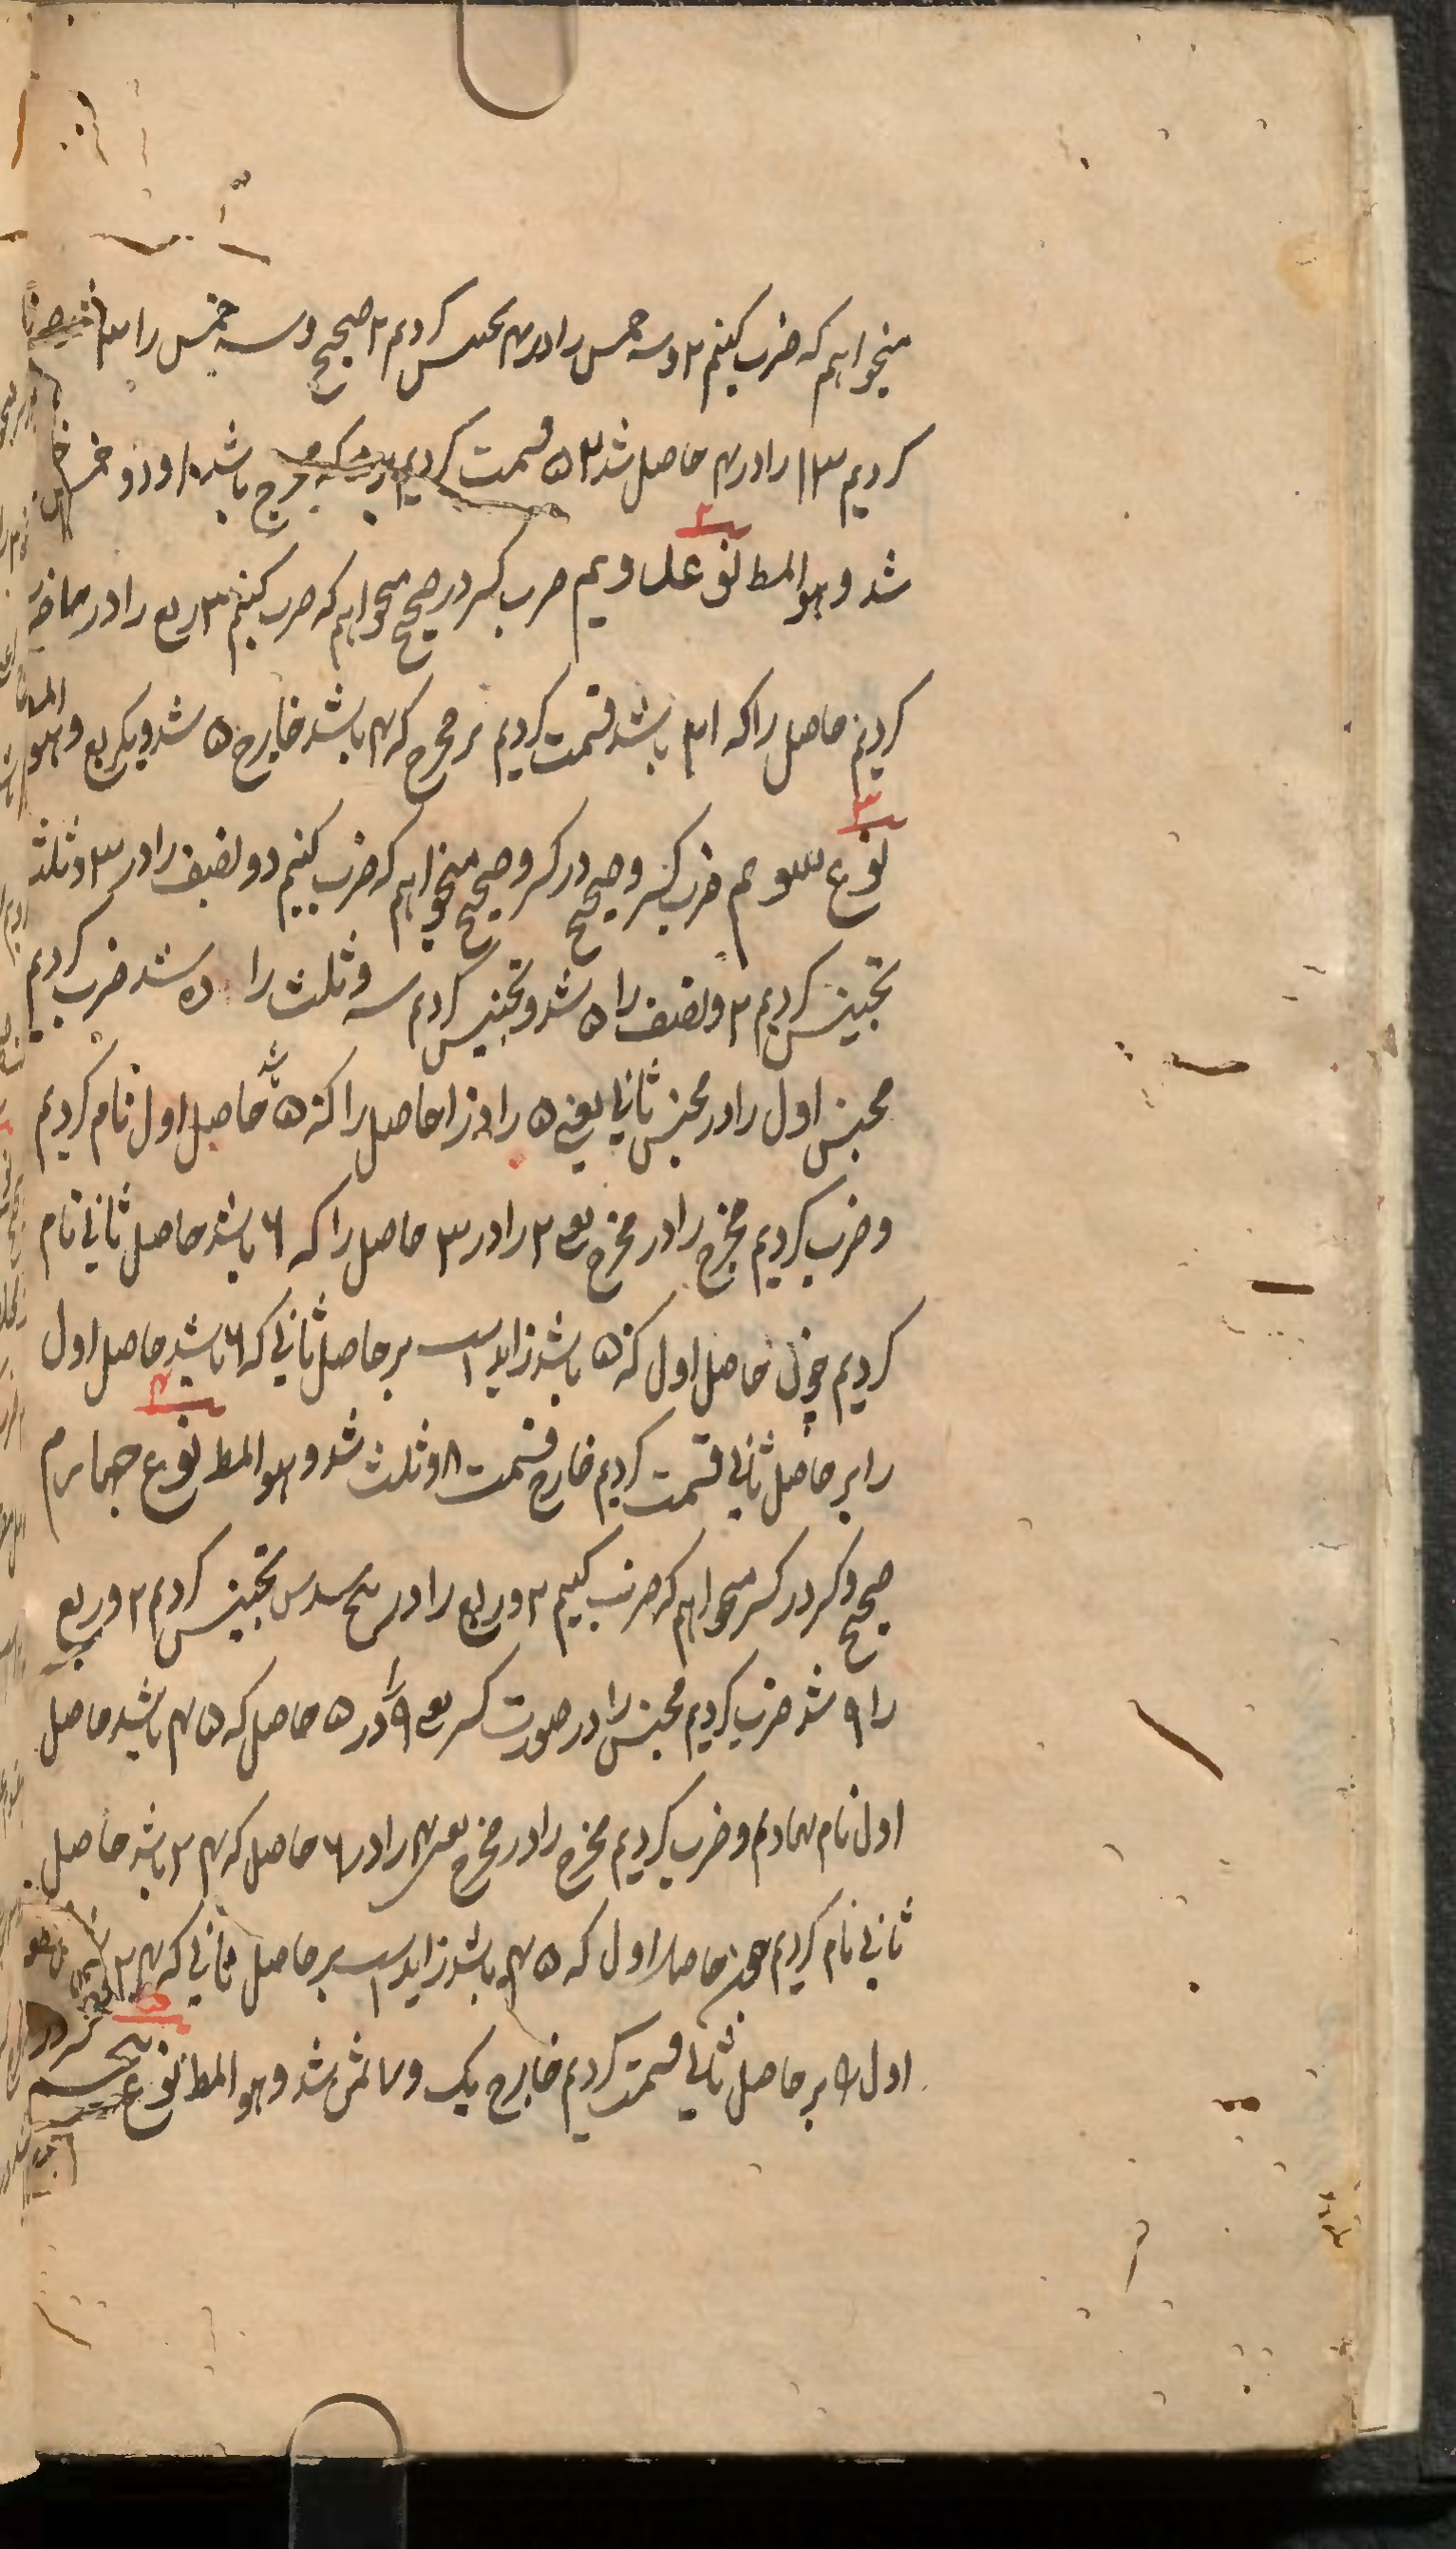 میخواهم که ضرب کنیم ۲ و سه خمس را در ۴ تجنیس کردیم ۲ صحیح و سه خمس را ۱۳ شد ضرب
کردیم ۱۳ را در ۴ حاصل شد ۵۲ قسمت کردیم بر ۵ که مخرج باشد ۱۰ و دو خمس
شد و هو المط نوع دویم ضرب کسر در صحیح میخواهم که ضرب کنیم ۳ ربع را در ۷
کردیم حاصل را که ۲۱ باشد قسمت کردیم بر مخرج که ۴ باشد خارج ۵ شد و یکربع و هو المط
۳
نوع سوم ضرب کسر و صحیح در کسر و صحیح میخواهم که ضرب کنیم دو و نصف را در ۳ و ثلث
تجنیس کردیم ۲ و نصف را ۵ شد و تجنیس کردیم سه و ثلث را ده شد ضرب کردیم
مجنس اول را در مجنس ثانی یعنی ۵ را در ۱۰ حاصل را که ۵۰ شد حاصل اول نام کردیم
و ضرب کردیم مخرج را در مخرج یعنی ۲ را در ۳ حاصل را که ۶ باشد حاصل ثانی نام
کردیم چون حاصل اول که ۵۰ باشد زاید است بر حاصل ثانی که ۶ باشد حاصل اول
۴
را بر حاصل ثانی قسمت کردیم خارج قسمت ۸ و ثلث شد و هو المط نوع چهارم
صحیح و کسر در کسر میخواهم که ضرب کنیم ۲ و ربع را در پنج سدس تجنیس کردیم ۲ و ربع
را ۹ شد ضرب کردیم مجنس را در صورت کسر یعنی ۹ را در ۵ حاصل که ۴۵ باشد حاصل
اول نام نهادیم و ضرب کردیم مخرج را در مخرج یعنی ۴ را در ۶ حاصل که ۲۴ باشد حاصل
ثانی نام کردیم چون حاصل اول که ۴۵ باشد زاید است بر حاصل ثانی که ۲۴
اول را بر حاصل ثانی قسمت کردیم خارج یک و ۷ ثمن شد و هو المط نوع پنجم